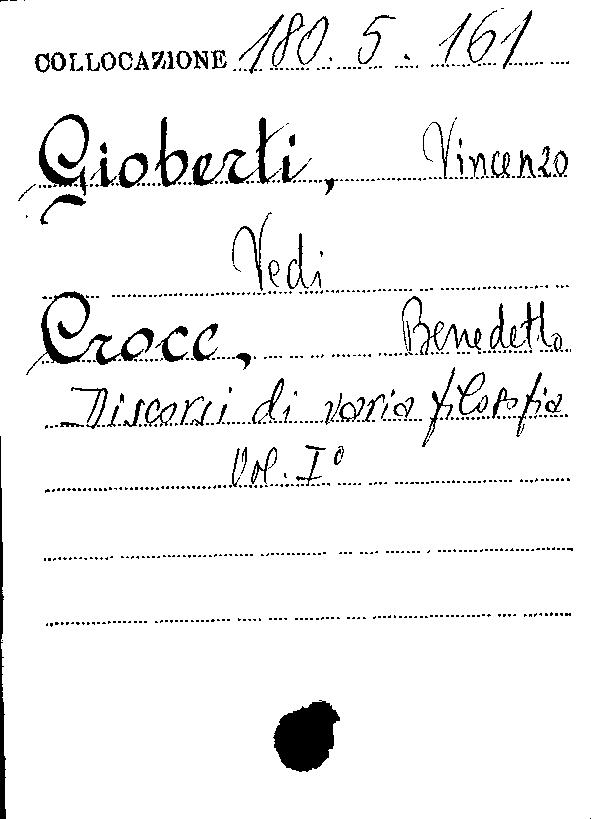 COLLOCAZIONE 180. 5. 161
Gioberti, Vincenzo
Vedi
Croce, Benedetto
Discorsi di varia filosofia
Vol. I°